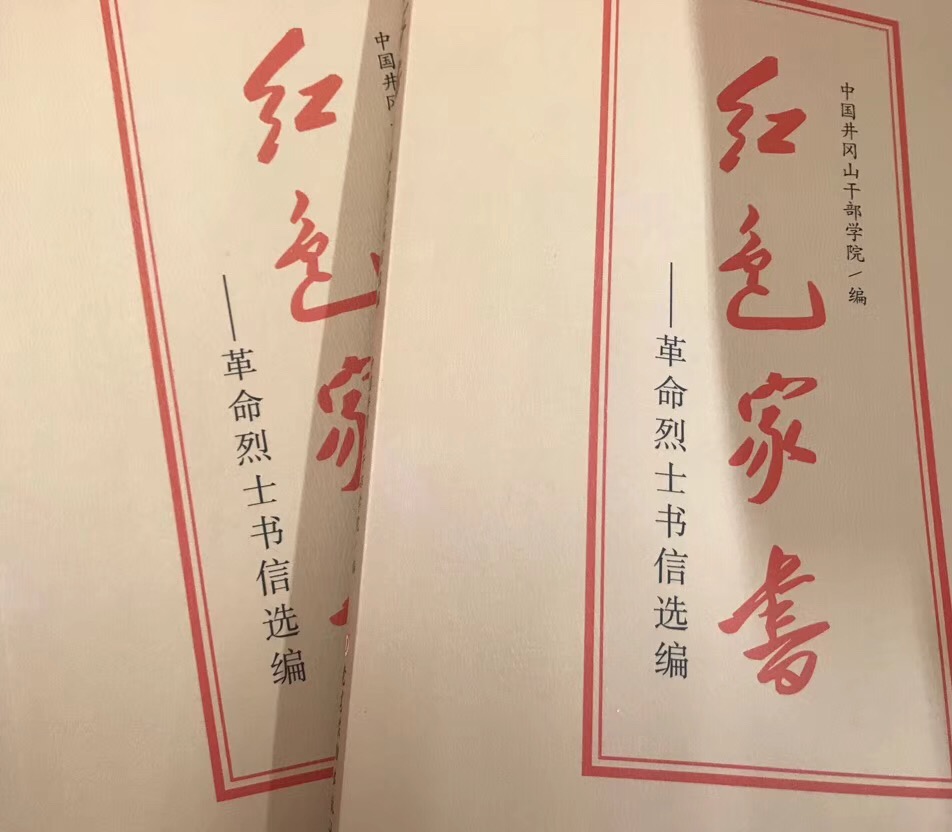 红色家
——革命烈士书信选编
中国井冈
红色家书
——革命烈士书信选编
中国井冈山干部学院/编